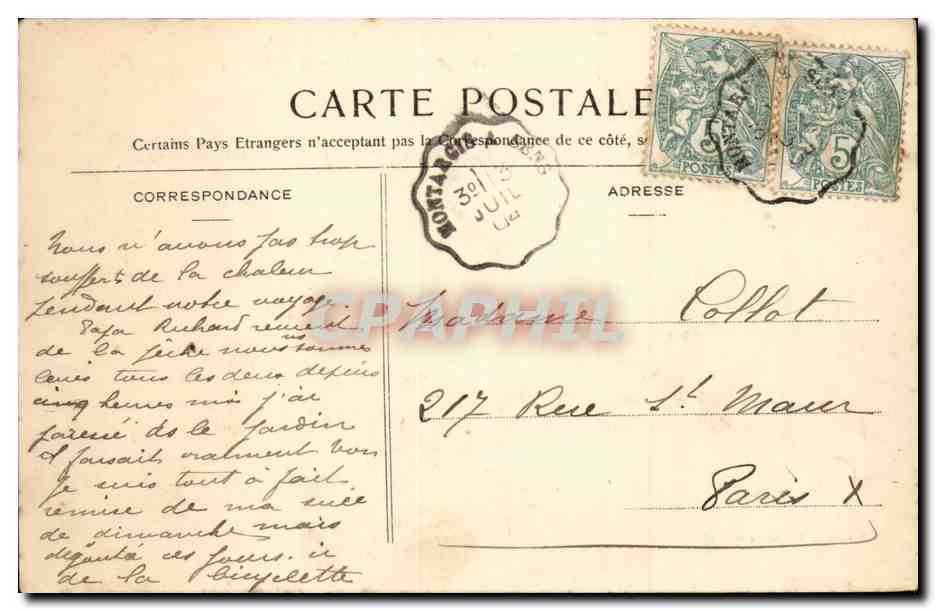 CARTE POSTALE
Certains Pays Etrangers n'acceptant pas la Correspondance de ce côté, s
CORRESPONDANCE
ADRESSE
MONTARGIS A SENS
3º 13
JUIL
04
MONTARGIS
SENS
5
POSTES
5
POSTES
CPAPHIL
Nous n'avons pas trop
souffert de la chaleur
pendant notre voyage
Papa Richard revient
de la pêche nous sommes
levés tous les deux depuis
cinq heures moi j'ai
paressé ds le jardin
il faisait vraiment bon
je suis tout à fait
remise de ma
de dimanche mais
dégoûtée ces jours-ci
de la bicyclette
Madame Collot
217 Rue St. Maur
Paris X